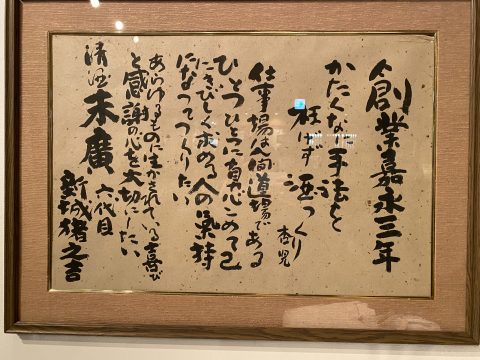 創業嘉永三年
かたくなに手法を
枉げず酒つくり
杏児
仕事場は人間道場である
ひとつひとつに真心こめて己
にきびしく求める人の気持
になってつくりたい
あらゆるものに生かされている喜び
と感謝の心を大切にしたい
清酒 末廣
六代目
新城猪之吉